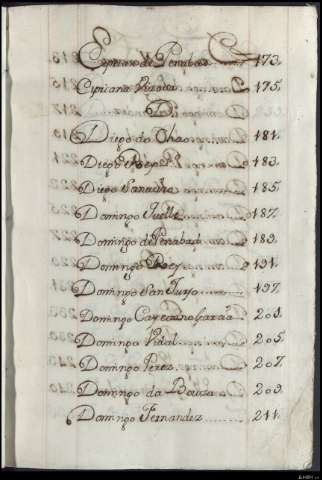 Cipriano de Penabad 173.
Cipriana 175.
D
Diego do Chao 181.
Diego 183.
Diego 185.
Domingo 187.
Domingo de Penabad 189.
Domingo 191.
Domingo San Turjo 197.
Domingo Garcia 203.
Domingo Vidal 205.
Domingo Perez 207.
Domingo da Bouza 209.
Domingo Fernandez 211.